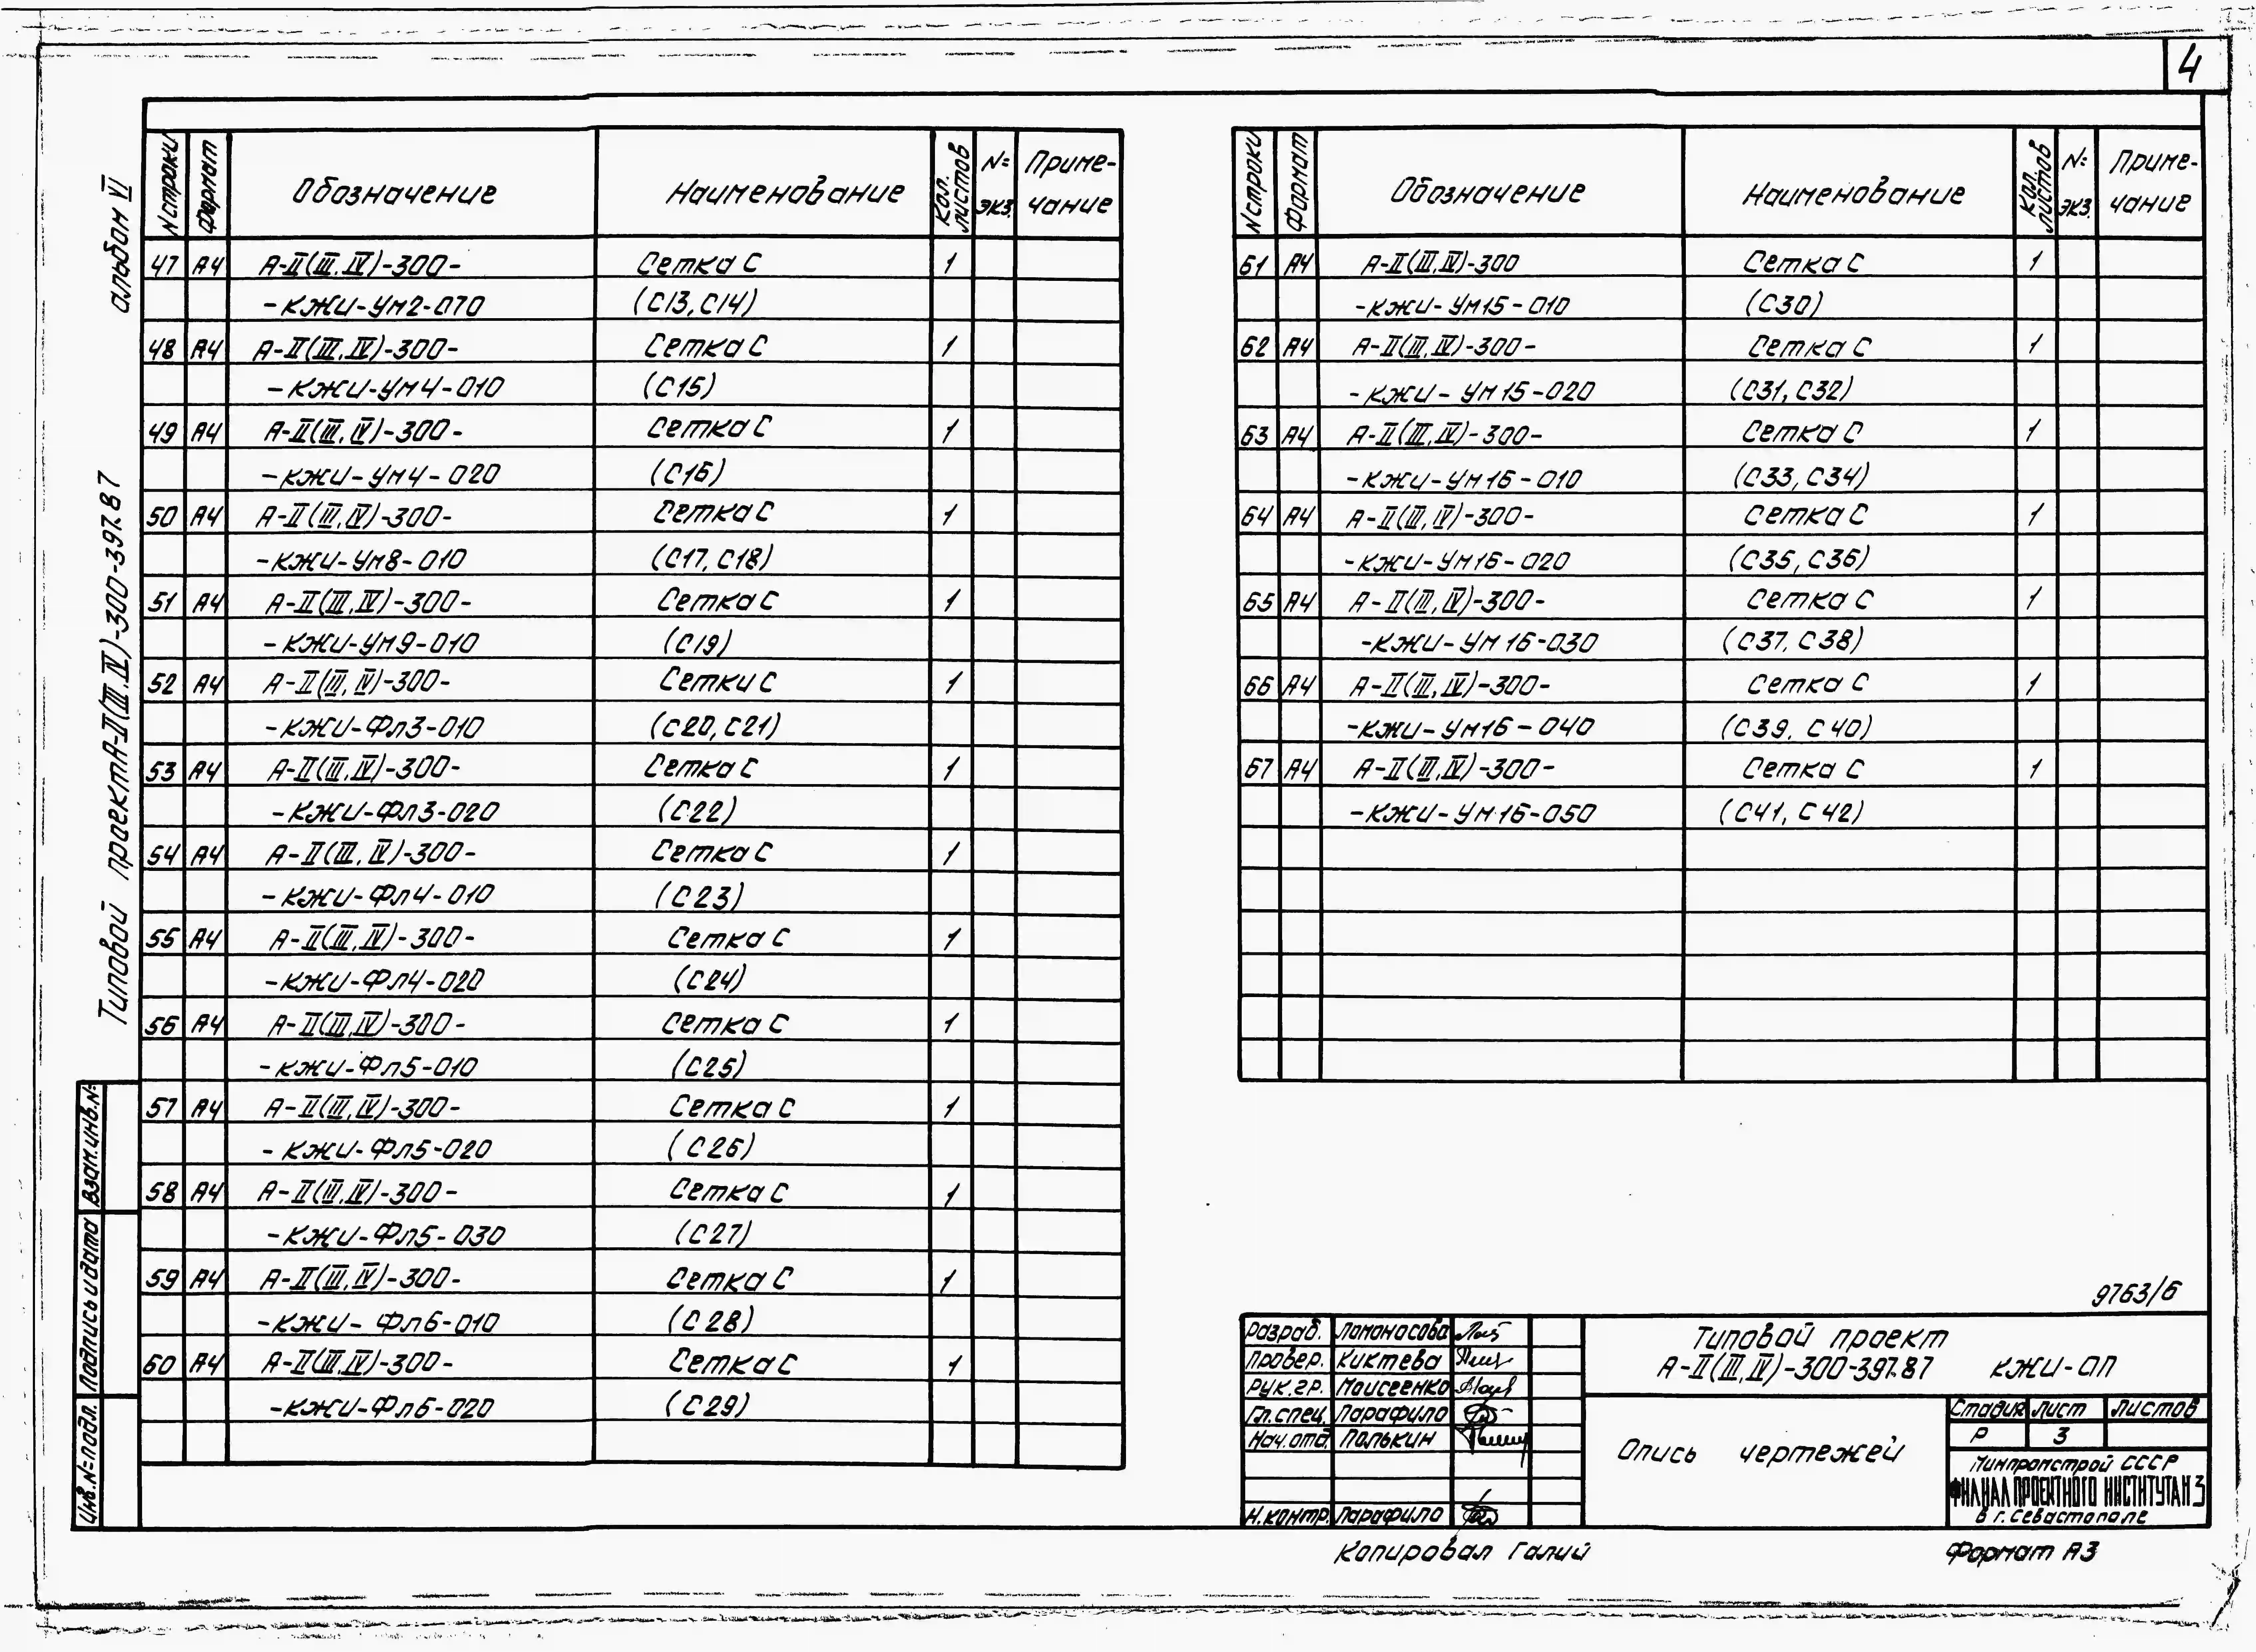 4
альбом VI
Типовой проект А-II(III,IV)-300-397.87
N строки Формат Обозначение Наименование Кол. листов №экз. Примечание
47 А4 А-II(III,IV)-300- Сетка С 1
-КЖИ-УМ2-070 (С13,С14)
48 А4 А-II(III,IV)-300- Сетка С 1
-КЖИ-УМ4-010 (С15)
49 А4 А-II(III,IV)-300- Сетка С 1
-КЖИ-УМ4-020 (С16)
50 А4 А-II(III,IV)-300- Сетка С 1
-КЖИ-УМ8-010 (С17, С18)
51 А4 А-II(III,IV)-300- Сетка С 1
-КЖИ-УМ9-010 (С19)
52 А4 А-II(III,IV)-300- Сетки С 1
-КЖИ-Фл3-010 (С20,С21)
53 А4 А-II(III,IV)-300- Сетка С 1
-КЖИ-Фл3-020 (С22)
54 А4 А-II(III,IV)-300- Сетка С 1
-КЖИ-Фл4-010 (С23)
55 А4 А-II(III,IV)-300- Сетка С 1
-КЖИ-Фл4-020 (С24)
56 А4 А-II(III,IV)-300- Сетка С 1
-КЖИ-Фл5-010 (С25)
57 А4 А-II(III,IV)-300- Сетка С 1
-КЖИ-Фл5-020 (С26)
58 А4 А-II(III,IV)-300- Сетка С 1
-КЖИ-Фл5-030 (С27)
59 А4 А-II(III,IV)-300- Сетка С 1
-КЖИ-Фл6-010 (С28)
60 А4 А-II(III,IV)-300- Сетка С 1
-КЖИ-Фл6-020 (С29)
N строки Формат Обозначение Наименование Кол. листов №экз. Примечание
61 А4 А-II(III,IV)-300 Сетка С 1
-КЖИ-УМ15-010 (С30)
62 А4 А-II(III,IV)-300- Сетка С 1
-КЖИ-УМ15-020 (С31, С32)
63 А4 А-II(III,IV)-300- Сетка С 1
-КЖИ-УМ16-010 (С33, С34)
64 А4 А-II(III,IV)-300- Сетка С 1
-КЖИ-УМ16-020 (С35, С36)
65 А4 А-II(III,IV)-300- Сетка С 1
-КЖИ-УМ16-030 (С37, С38)
66 А4 А-II(III,IV)-300- Сетка С 1
-КЖИ-УМ16-040 (С39, С40)
67 А4 А-II(III,IV)-300- Сетка С 1
-КЖИ-УМ16-050 (С41, С42)
Взам.инв.№
Подпись и дата
Инв.№ подл.
9763/6
Разраб. Ломоносова
Провер. Киктева
Рук.гр. Моисеенко
Гл.спец. Парафило
Нач.отд. Полькин
Н.контр. Парафило
Типовой проект
А-II(III,IV)-300-397.87 КЖИ-ОП
Опись чертежей
Стадия Лист Листов
Р 3
Минпромстрой СССР
ФИЛИАЛ ПРОЕКТНОГО ИНСТИТУТА N 3
в г. Севастополе
Копировал Галий
Формат А3